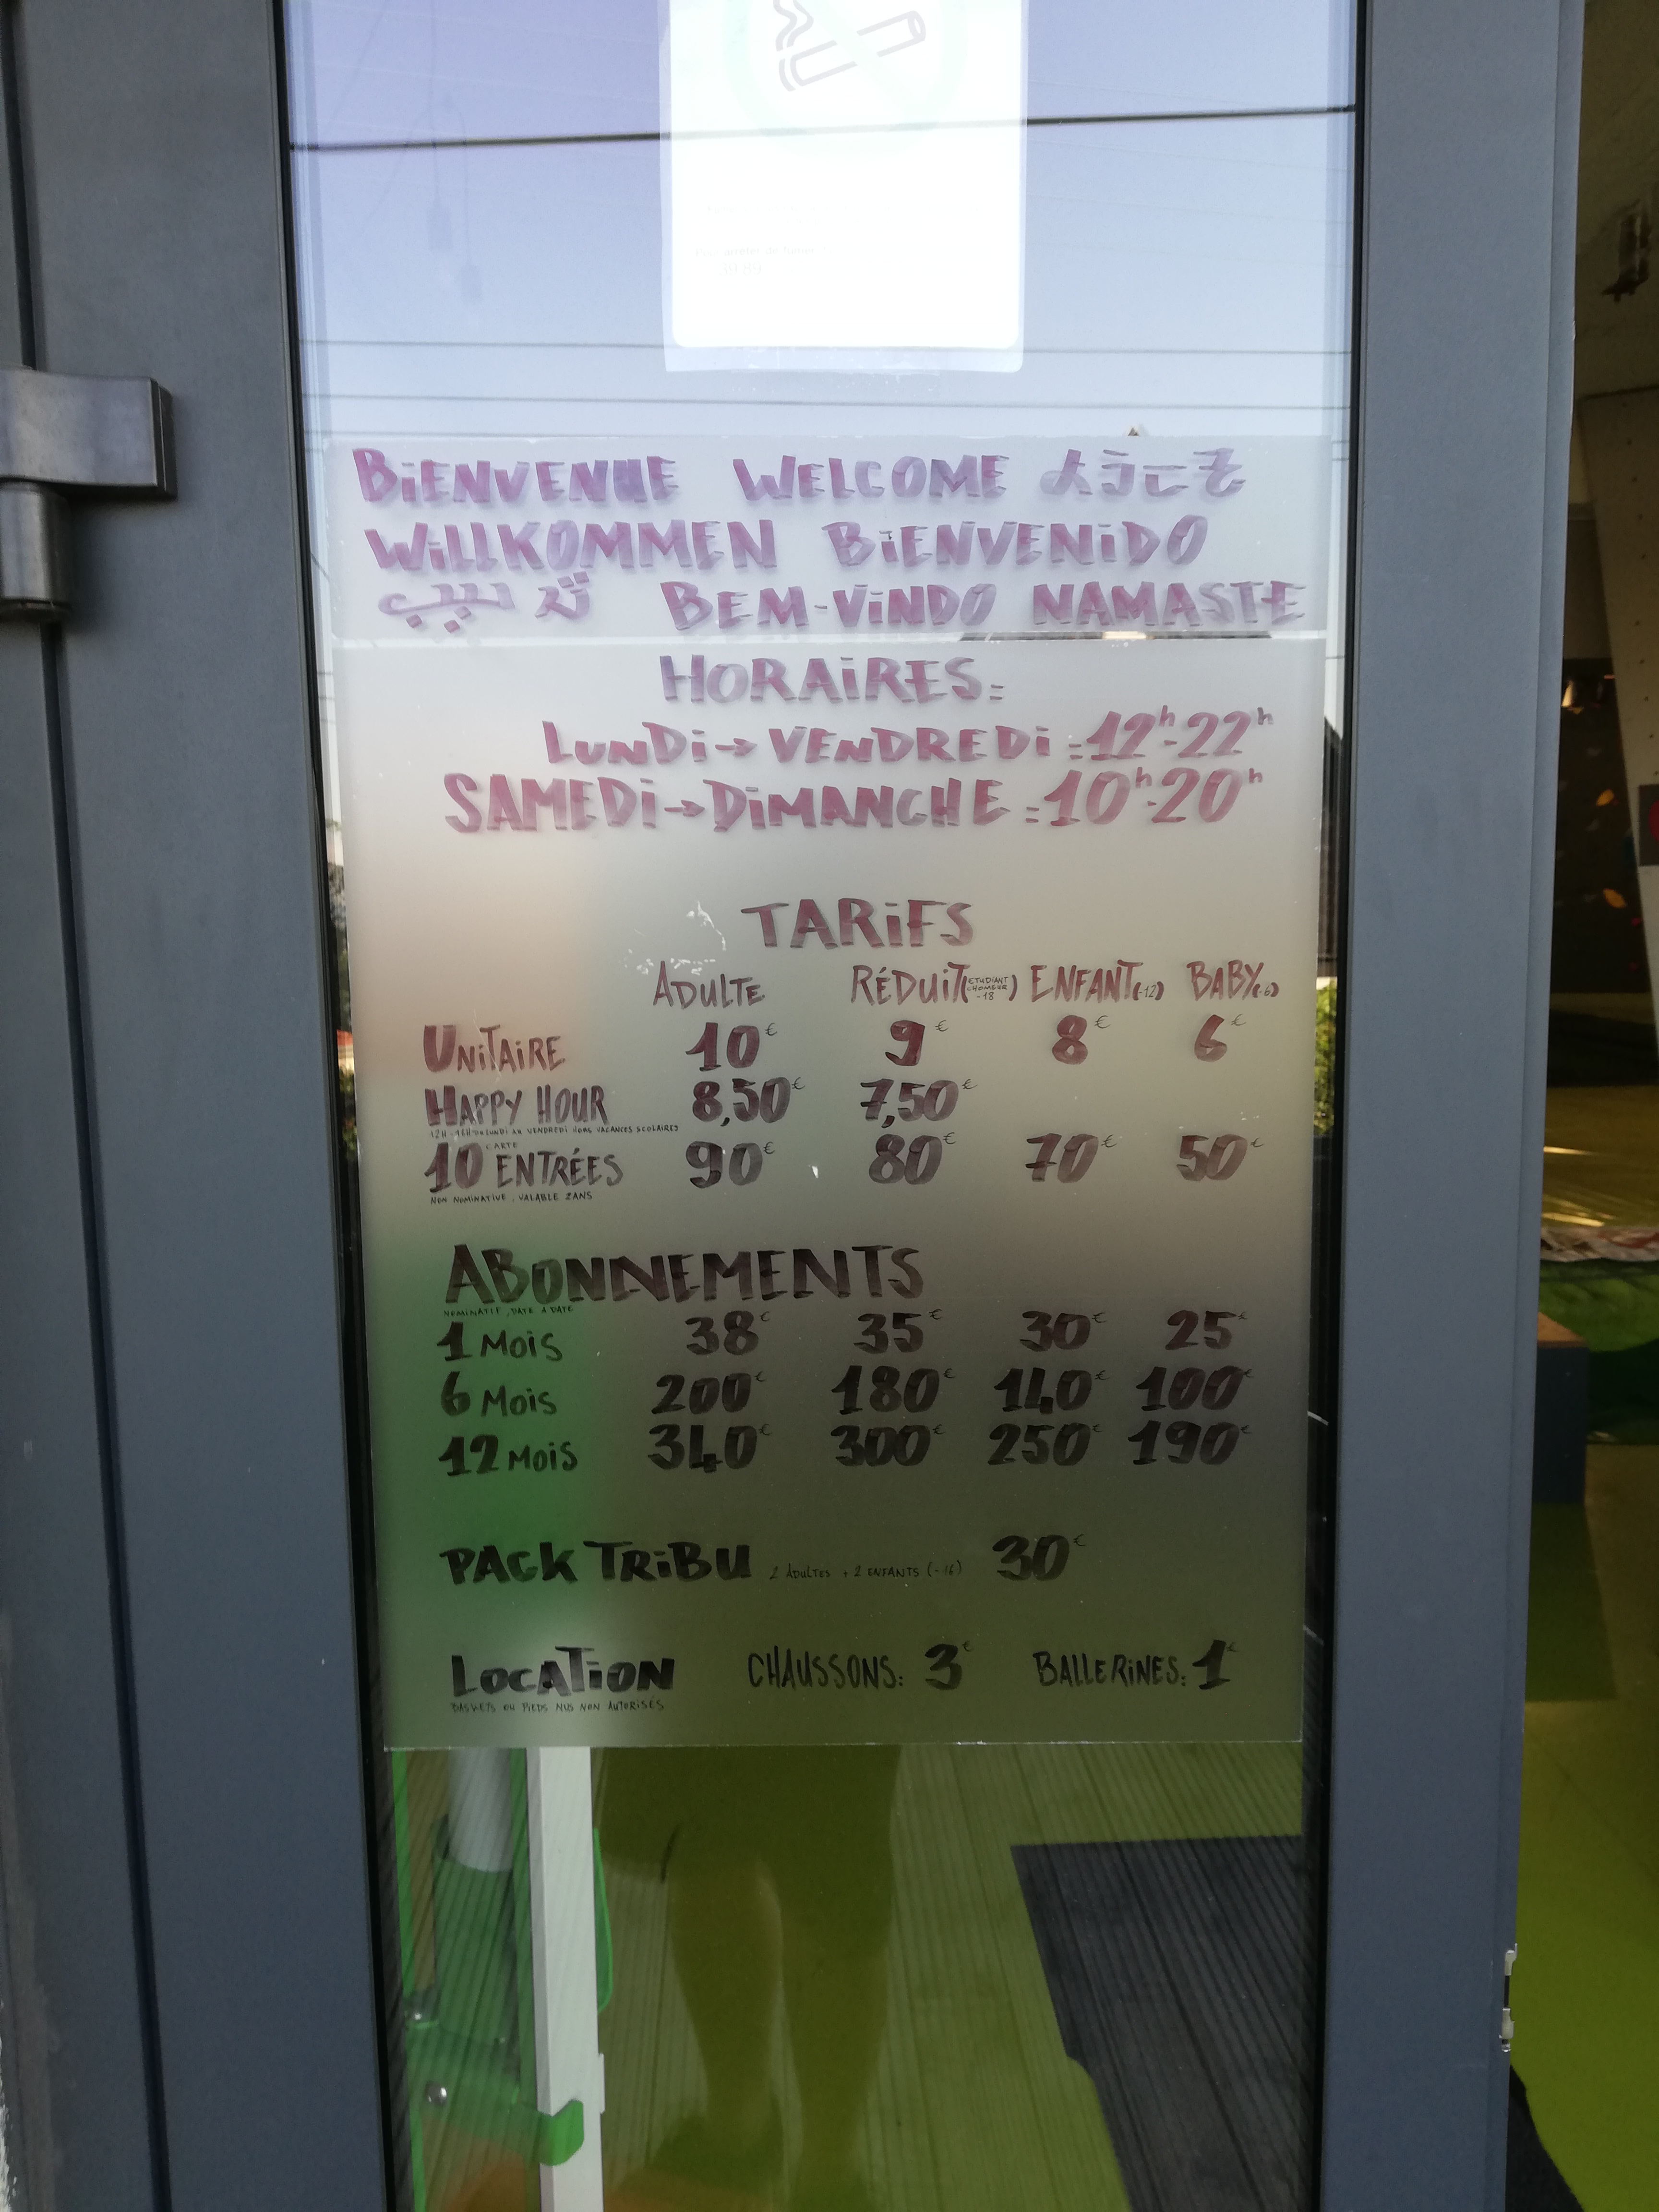 BIENVENUE WELCOME ようこそ
WILLKOMMEN BIENVENIDO
BEM-VINDO NAMASTE
HORAIRES:
LUNDI → VENDREDI : 12h-22h
SAMEDI → DIMANCHE : 10h-20h
TARIFS
ADULTE RÉDUIT (ETUDIANT CHOMEUR -18) ENFANT (-12) BABY (-6)
UNITAIRE 10€ 9€ 8€ 6€
HAPPY HOUR 8,50€ 7,50€
12H-16H DE LUNDI AU VENDREDI HORS VACANCES SCOLAIRES
CARTE
10 ENTRÉES 90€ 80€ 70€ 50€
NON NOMINATIVE, VALABLE 2 ANS
ABONNEMENTS
NOMINATIF, DATE A DATE
1 MOIS 38€ 35€ 30€ 25€
6 MOIS 200€ 180€ 140€ 100€
12 MOIS 340€ 300€ 250€ 190€
PACK TRIBU 2 ADULTES + 2 ENFANTS (-16) 30€
LOCATION CHAUSSONS: 3€ BALLERINES: 1€
BASKETS OU PIEDS NUS NON AUTORISÉS